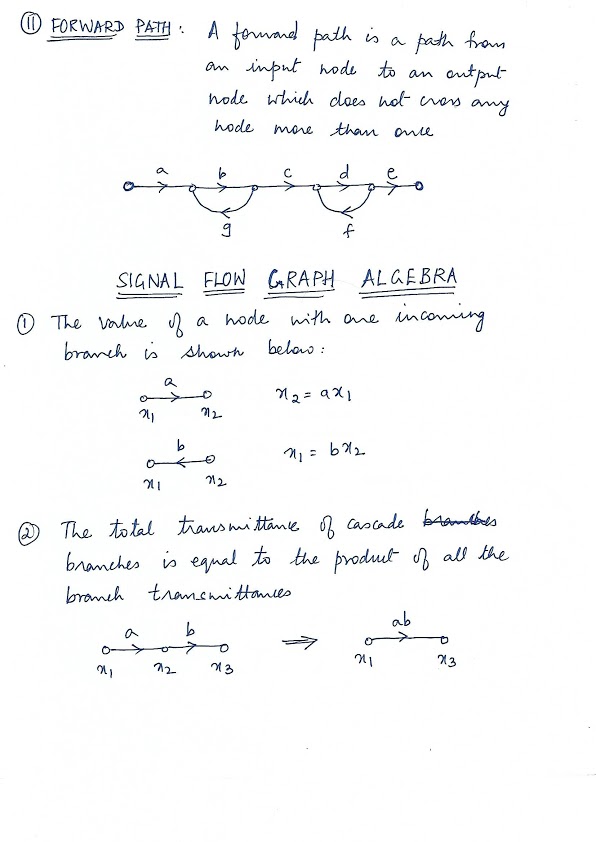 ⑪ FORWARD PATH : A forward path is a path from
an input node to an output
node which does not cross any
node more than once
a b c d e
g f
SIGNAL FLOW GRAPH ALGEBRA
① The value of a node with one incoming
branch is shown below :
a
x₁ x₂ x₂ = ax₁
b
x₁ x₂ x₁ = bx₂
② The total transmittance of cascade branches
branches is equal to the product of all the
branch transmittances
a b ⇒ ab
x₁ x₂ x₃ x₁ x₃